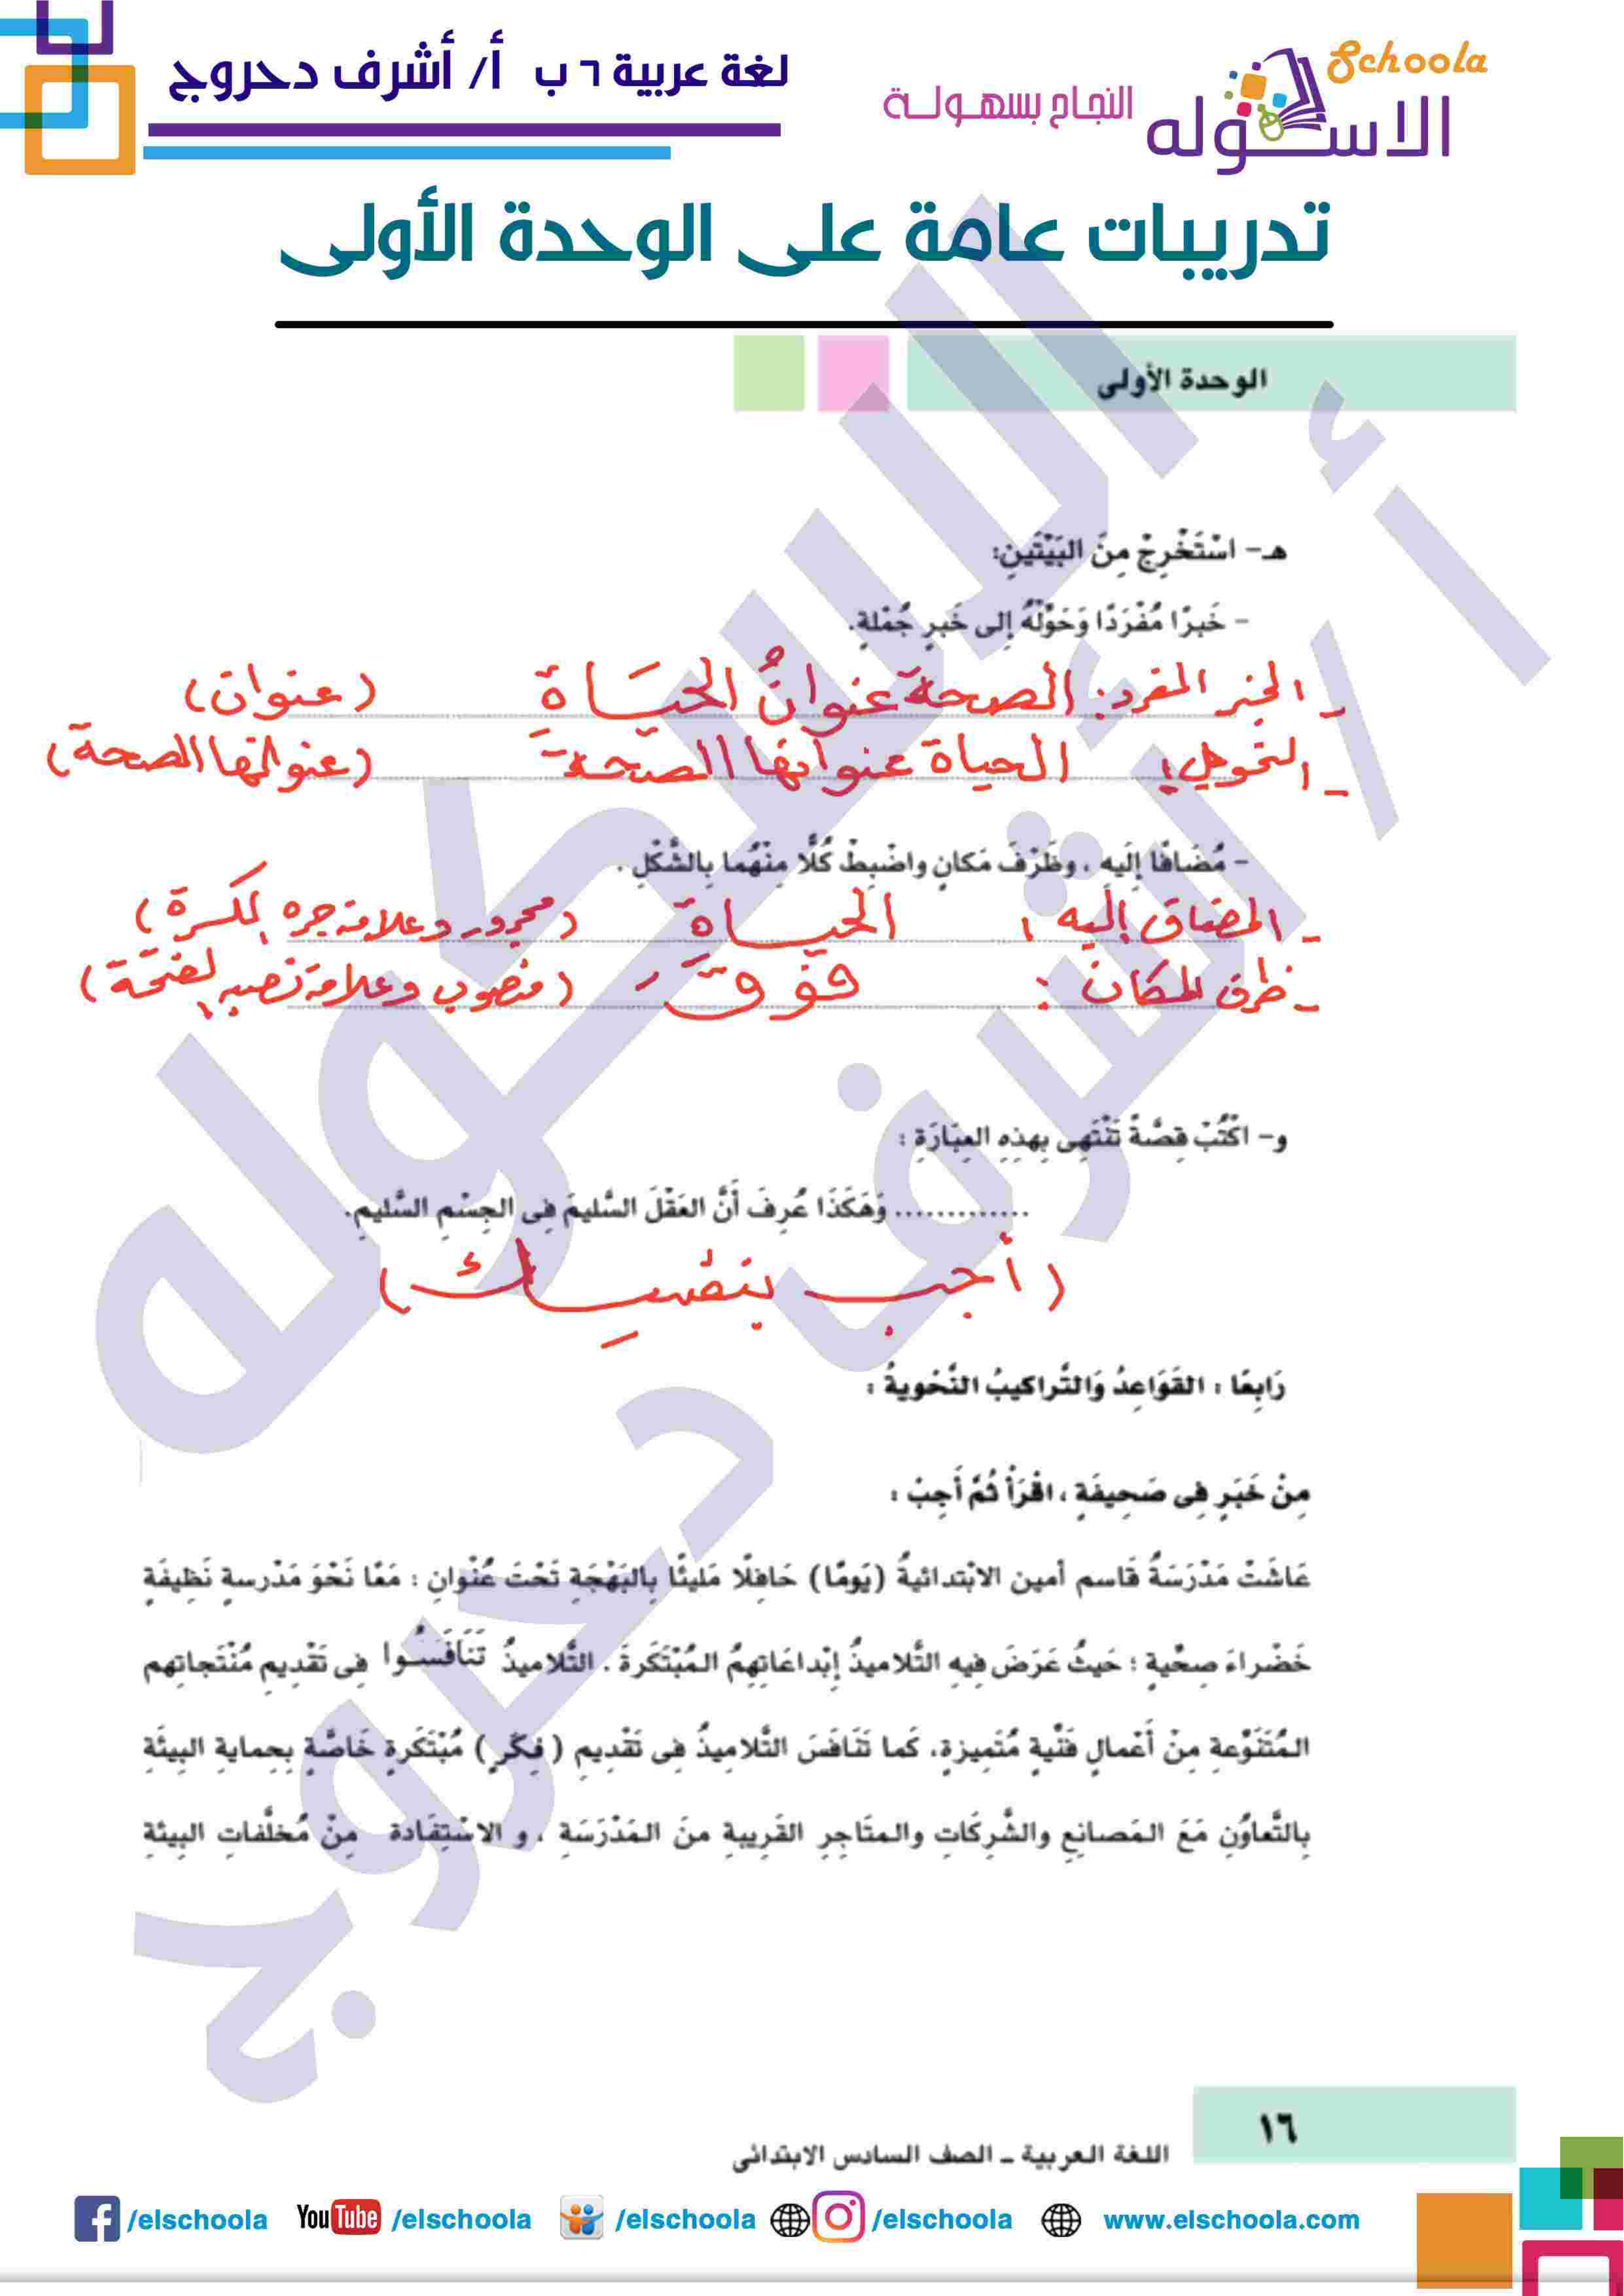 لغة عربية ٦ ب أ/ أشرف دحروج
Schoola
الاسكوله
النجاح بسهولة
تدريبات عامة على الوحدة الأولى
الوحدة الأولى
هـ- اسْتَخْرِجْ مِنَ البَيْتَينِ:
- خَبَرًا مُفْرَدًا وَحَوِّلْهُ إلى خَبَرٍ جُمْلةٍ.
- الخبر المفرد: الصحة عنوانُ الحيَاة (عنوان)
- التحويل: الحياة عنوانها الصحة (عنوانها الصحة)
- مُضَافًا إلَيهِ ، وظَرْفَ مَكانٍ واضْبِطْ كُلًّا مِنْهُما بِالشَّكْلِ .
- المضاف إليه : الحيــاة (مجرور وعلامة جره الكسرة)
- ظرف المكان : فوقَ - (منصوب وعلامة نصبه الفتحة)
و- اكْتُبْ قِصَّةً تَنْتَهِى بِهذِهِ العِبَارَةِ :
............. وَهَكَذَا عُرِفَ أَنَّ العَقْلَ السَّليمَ فِى الجِسْمِ السَّليمِ.
(أجب بنفسِك)
رَابِعًا : القَوَاعِدُ وَالتَّراكيبُ النَّحْويةُ :
مِنْ خَبَرٍ فِى صَحِيفَةٍ ، اقْرَأْ ثُمَّ أَجِبْ :
عَاشَتْ مَدْرَسَةُ قَاسم أمين الابْتدائيةُ (يَومًا) حَافِلًا مَليئًا بِالبَهْجَةِ تَحْتَ عُنْوانِ : مَعًا نَحْوَ مَدْرسةٍ نَظِيفَةٍ
خَضْراءَ صِحِّيةٍ ؛ حَيثُ عَرَضَ فِيهِ التَّلاميذُ إبْداعَاتِهِمُ المُبْتَكَرةَ . التَّلاميذُ تَنَافَسُـوا فِى تَقْديمِ مُنْتَجاتِهم
المُتَنَوِّعةِ مِنْ أَعْمالٍ فَنِّيةٍ مُتَميزةٍ، كَما تَنَافَسَ التَّلاميذُ فِى تَقْديمِ ( فِكَرٍ ) مُبْتَكَرةٍ خَاصَّةٍ بِحِمايةِ البِيئَةِ
بِالتَّعاوُنِ مَعَ المَصانِعِ والشَّرِكَاتِ والمتَاجِرِ القَرِيبةِ منَ المَدْرَسَةِ ، و الاسْتِفَادة مِنْ مُخلَّفاتِ البِيئةِ
١٦
اللغة العربية ـ الصف السادس الابتدائى
/elschoola YouTube /elschoola /elschoola /elschoola www.elschoola.com